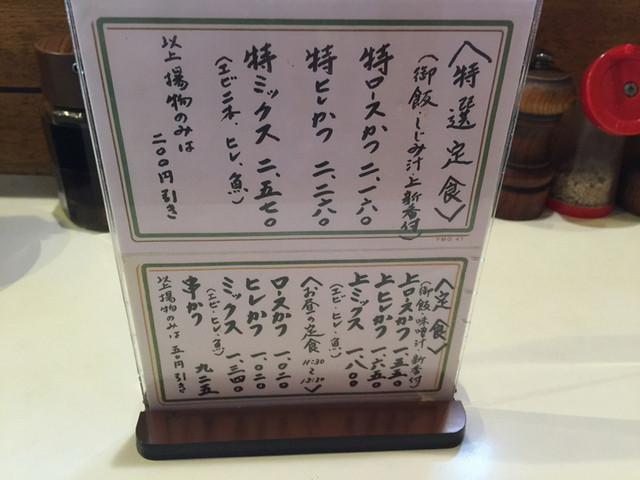 〈特選定食〉
(御飯・しじみ汁・上新香付)
特ロースかつ 二、一六〇
特ヒレかつ 二、二六〇
特ミックス 二、五七〇
(エビ二本、ヒレ、魚)
以上揚物のみは
二〇〇円引き
YMG 41
〈定食〉
(御飯味噌汁・新香付)
上ロースかつ 一、五五〇
上ヒレかつ 一、六五〇
上ミックス 一、八〇〇
(エビ・ヒレ・魚)
〈お昼の定食 11:30〜13:30〉
ロースかつ 一、〇二〇
ヒレかつ 一、〇二〇
ミックス 一、三四〇
(エビ・ヒレ・魚)
串かつ 九二五
以上揚物のみは 五〇円引き